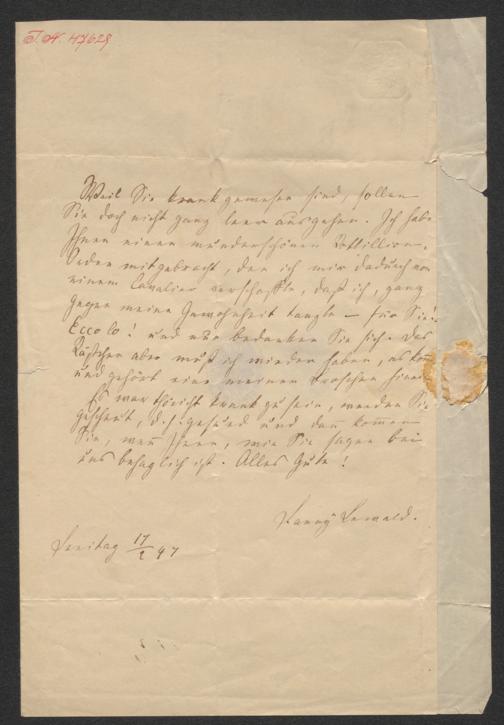 I. N. 47629
Weil Sie krank gewesen sind, sollen
Sie doch nicht ganz leer ausgehen. Ich habe
Ihnen einen wunderschönen Cottillion-
Orden mitgebracht, den ich mir dadurch von
einem Cavalier verschaffte, daß ich, ganz
gegen meine Gewohnheit tanzte – für Sie!
Eccolo! und nun bedanken Sie sich. Das
Kästchen aber muß ich wieder haben, es
und gehört eine meiner Broschen hinein
Es war thöricht krank zu sein, werden Sie
gescheut, d. h. gesund und dann kommen
Sie, wenn Ihnen, wie Sie sagen bei
uns behaglich ist. Alles Gute!
Fanny Lewald.
Freitag 17/2 47